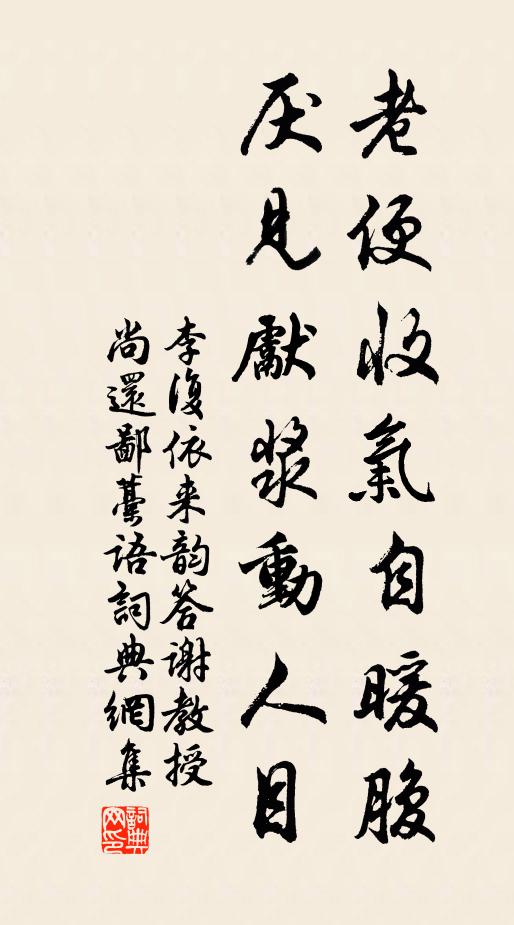 老便收氣自暖腹
厌見獻漿動人目
李復依来韵答谢教授
尚還鄙藁語詞典網集
詞典网印